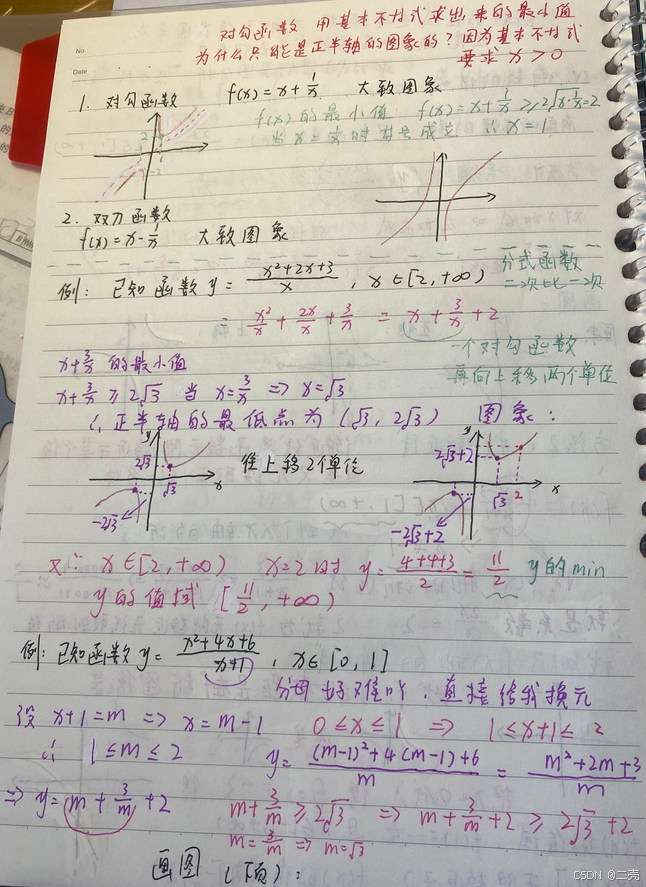 对勾函数 用基本不等式求出来的最小值
为什么只能是正半轴的图象的？因为基本不等式
要求 x > 0
No.
Date
1. 对勾函数 f(x) = x + 1/x 大致图象
f(x) 的最小值 f(x) = x + 1/x ≥ 2√x·1/x = 2
当 x = 1/x 时 等号成立 ∴ x = 1
2. 双刀函数
f(x) = x - 1/x 大致图象
例: 已知函数 y = (x²+2x+3)/x , x∈[2,+∞) 分式函数
二次比一次
= x²/x + 2x/x + 3/x = x + 3/x + 2
一个对勾函数
再向上移两个单位
x + 3/x 的最小值
x + 3/x ≥ 2√3 当 x = 3/x ⇒ x = √3
∴ 正半轴的最低点为 (√3, 2√3) 图象:
y
2√3
√3
x
-2√3
往上移2个单位
y
2√3+2
√3
2
x
-2√3+2
又∵ x∈[2,+∞) x=2时 y = (4+4+3)/2 = 11/2 y的min
y的值域 [11/2, +∞)
例: 已知函数 y = (x²+4x+6)/(x+1) , x∈[0,1]
分母好难吖, 直接给我换元
设 x+1=m ⇒ x=m-1 0≤x≤1 ⇒ 1≤x+1≤2
∴ 1≤m≤2 y = ((m-1)²+4(m-1)+6)/m = (m²+2m+3)/m
⇒ y = m + 3/m + 2 m + 3/m ≥ 2√3 ⇒ m + 3/m + 2 ≥ 2√3 + 2
m = 3/m ⇒ m = √3
画图 (下页):
CSDN @二壳